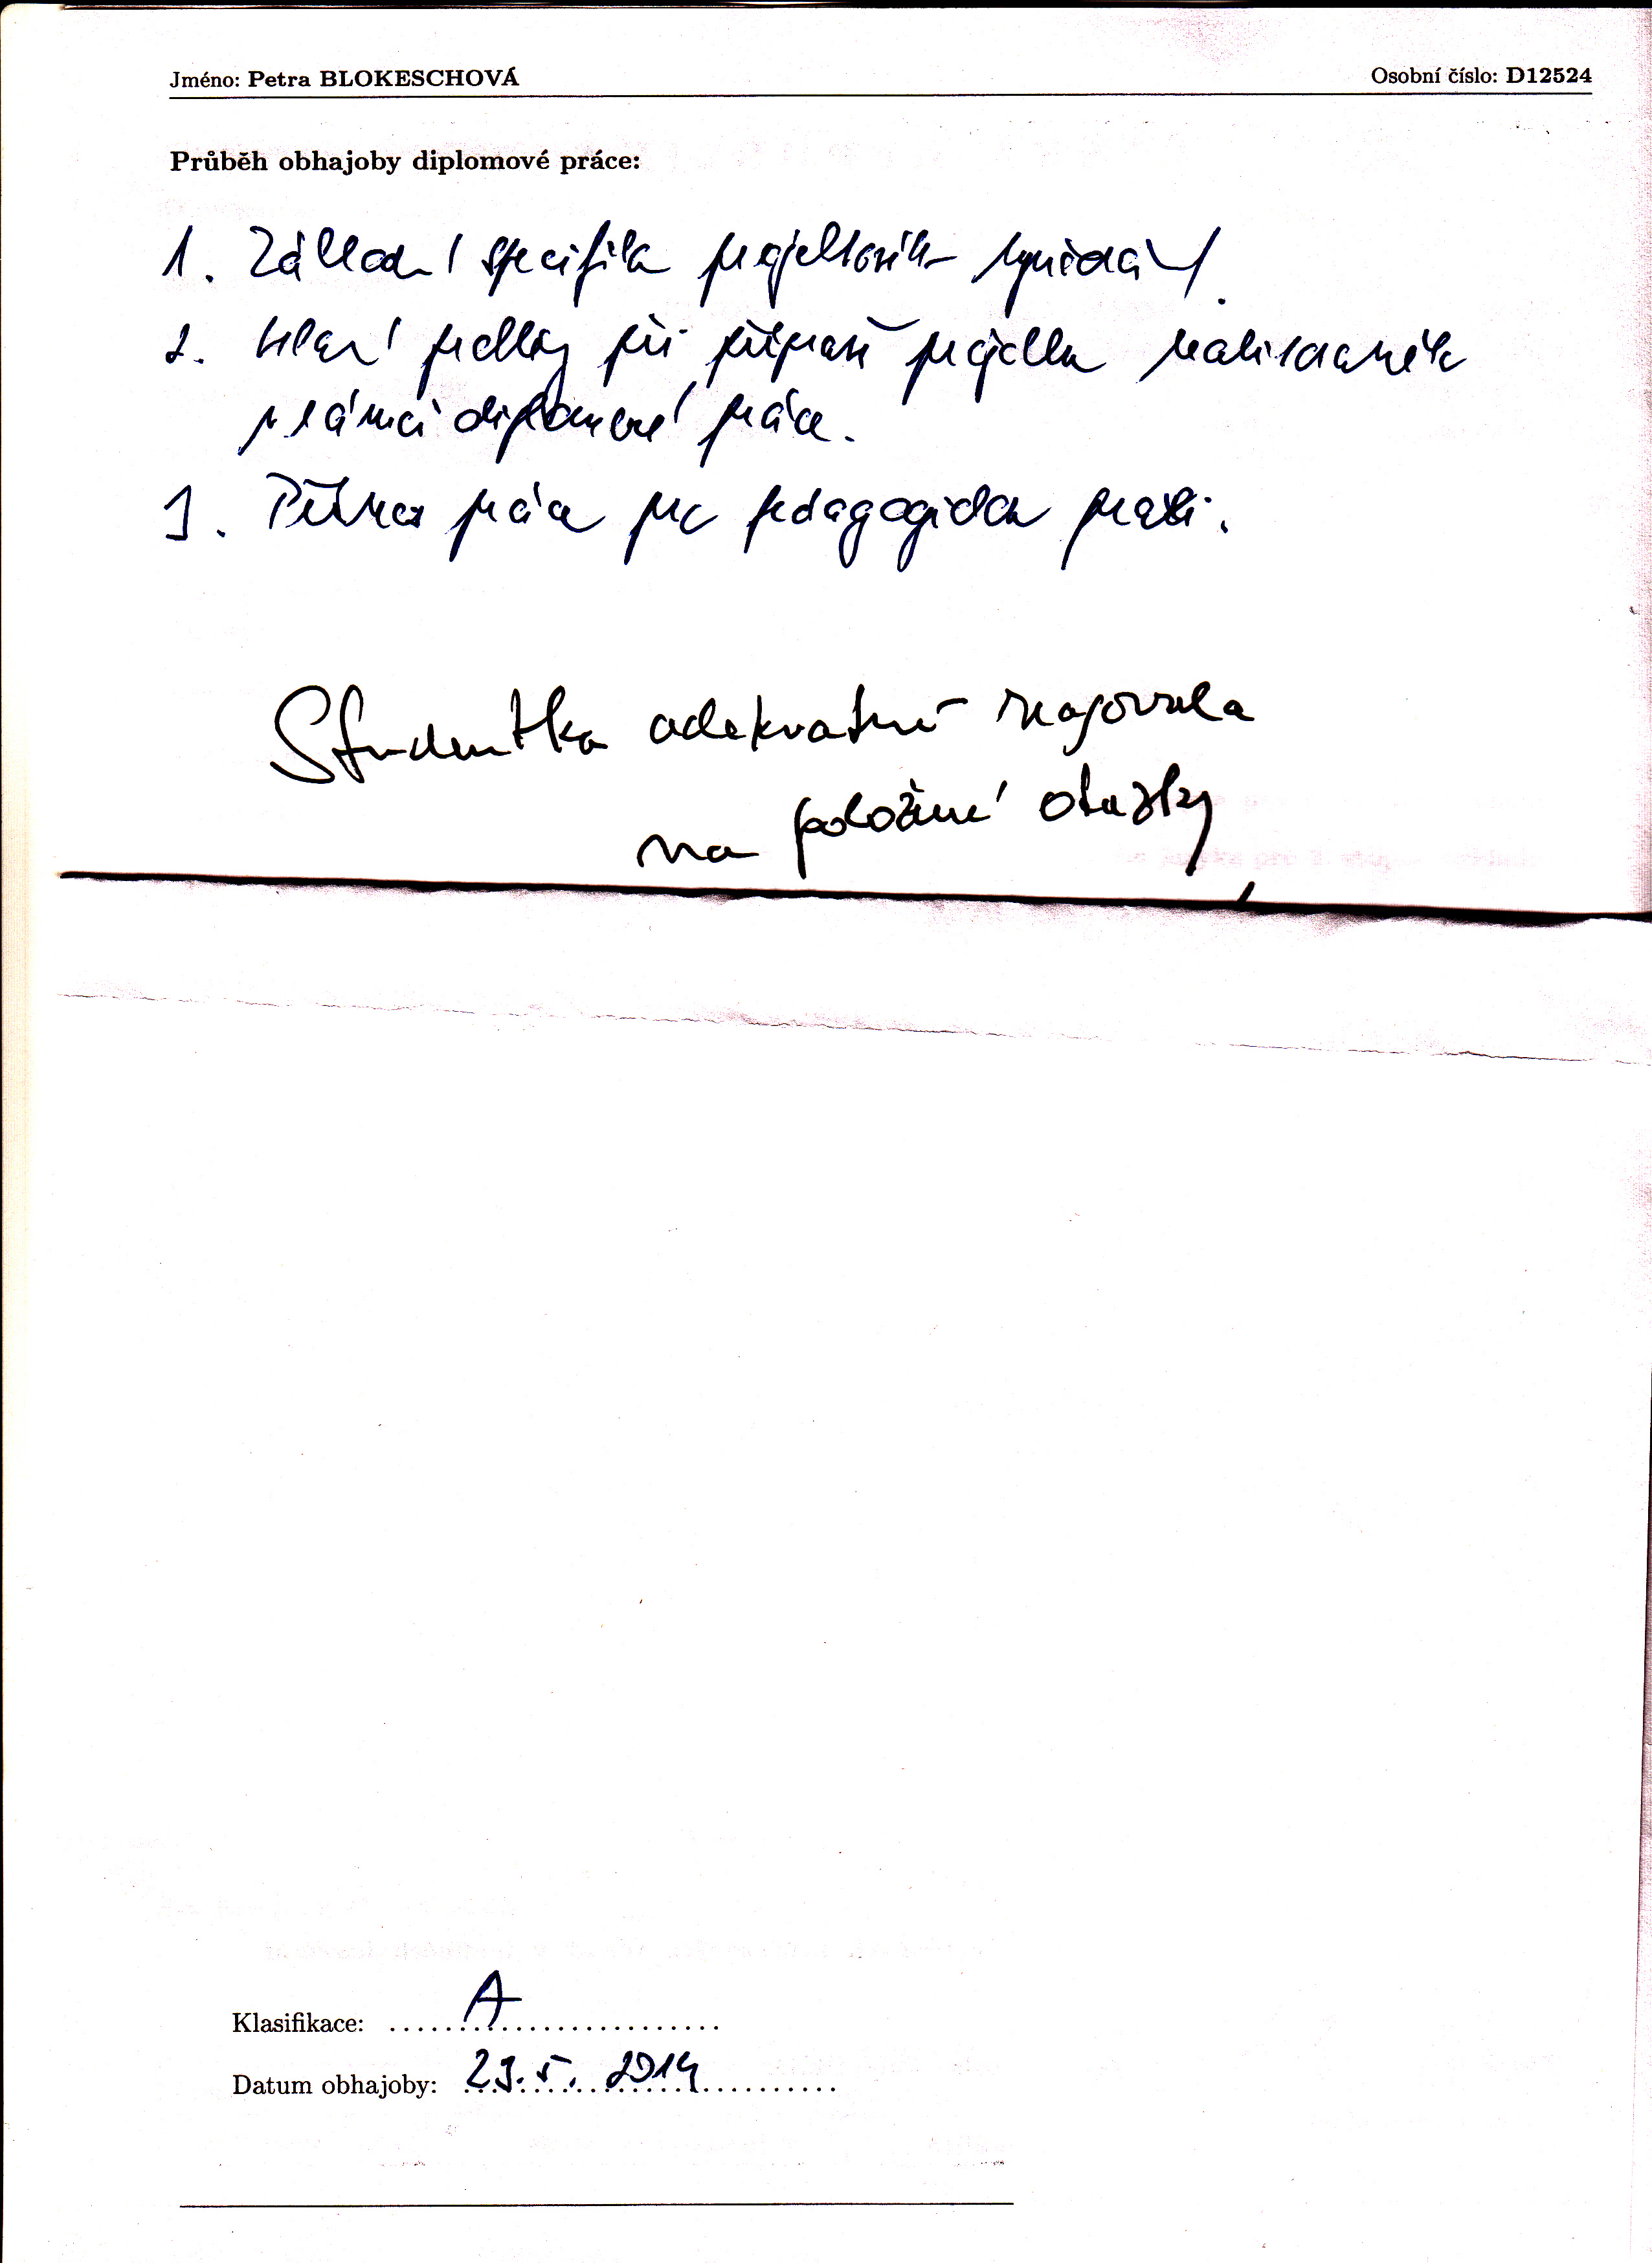 Jméno: Petra BLOKESCHOVÁ Osobní číslo: D12524
Průběh obhajoby diplomové práce:
1. Základní specifika projektového vyučování.
2. Hlavní problémy při přípravě projektu realizovaného
v rámci diplomové práce.
3. Přínos práce pro pedagogickou praxi.
Studentka adekvátně reagovala
na položené otázky
Klasifikace: A
Datum obhajoby: 23.5. 2014